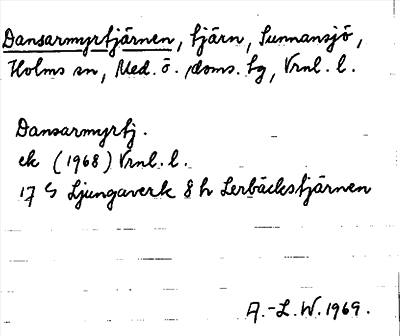 Dansarmyrtjärnen, tjärn, Sunnansjö,
Holms sn, Med. ö. doms. tg, Vrnl. l.
Dansarmyrtj.
ek (1968) Vrnl. l.
17 G Ljungaverk 8 h Lerbäckstjärnen
A.-L. W. 1969.